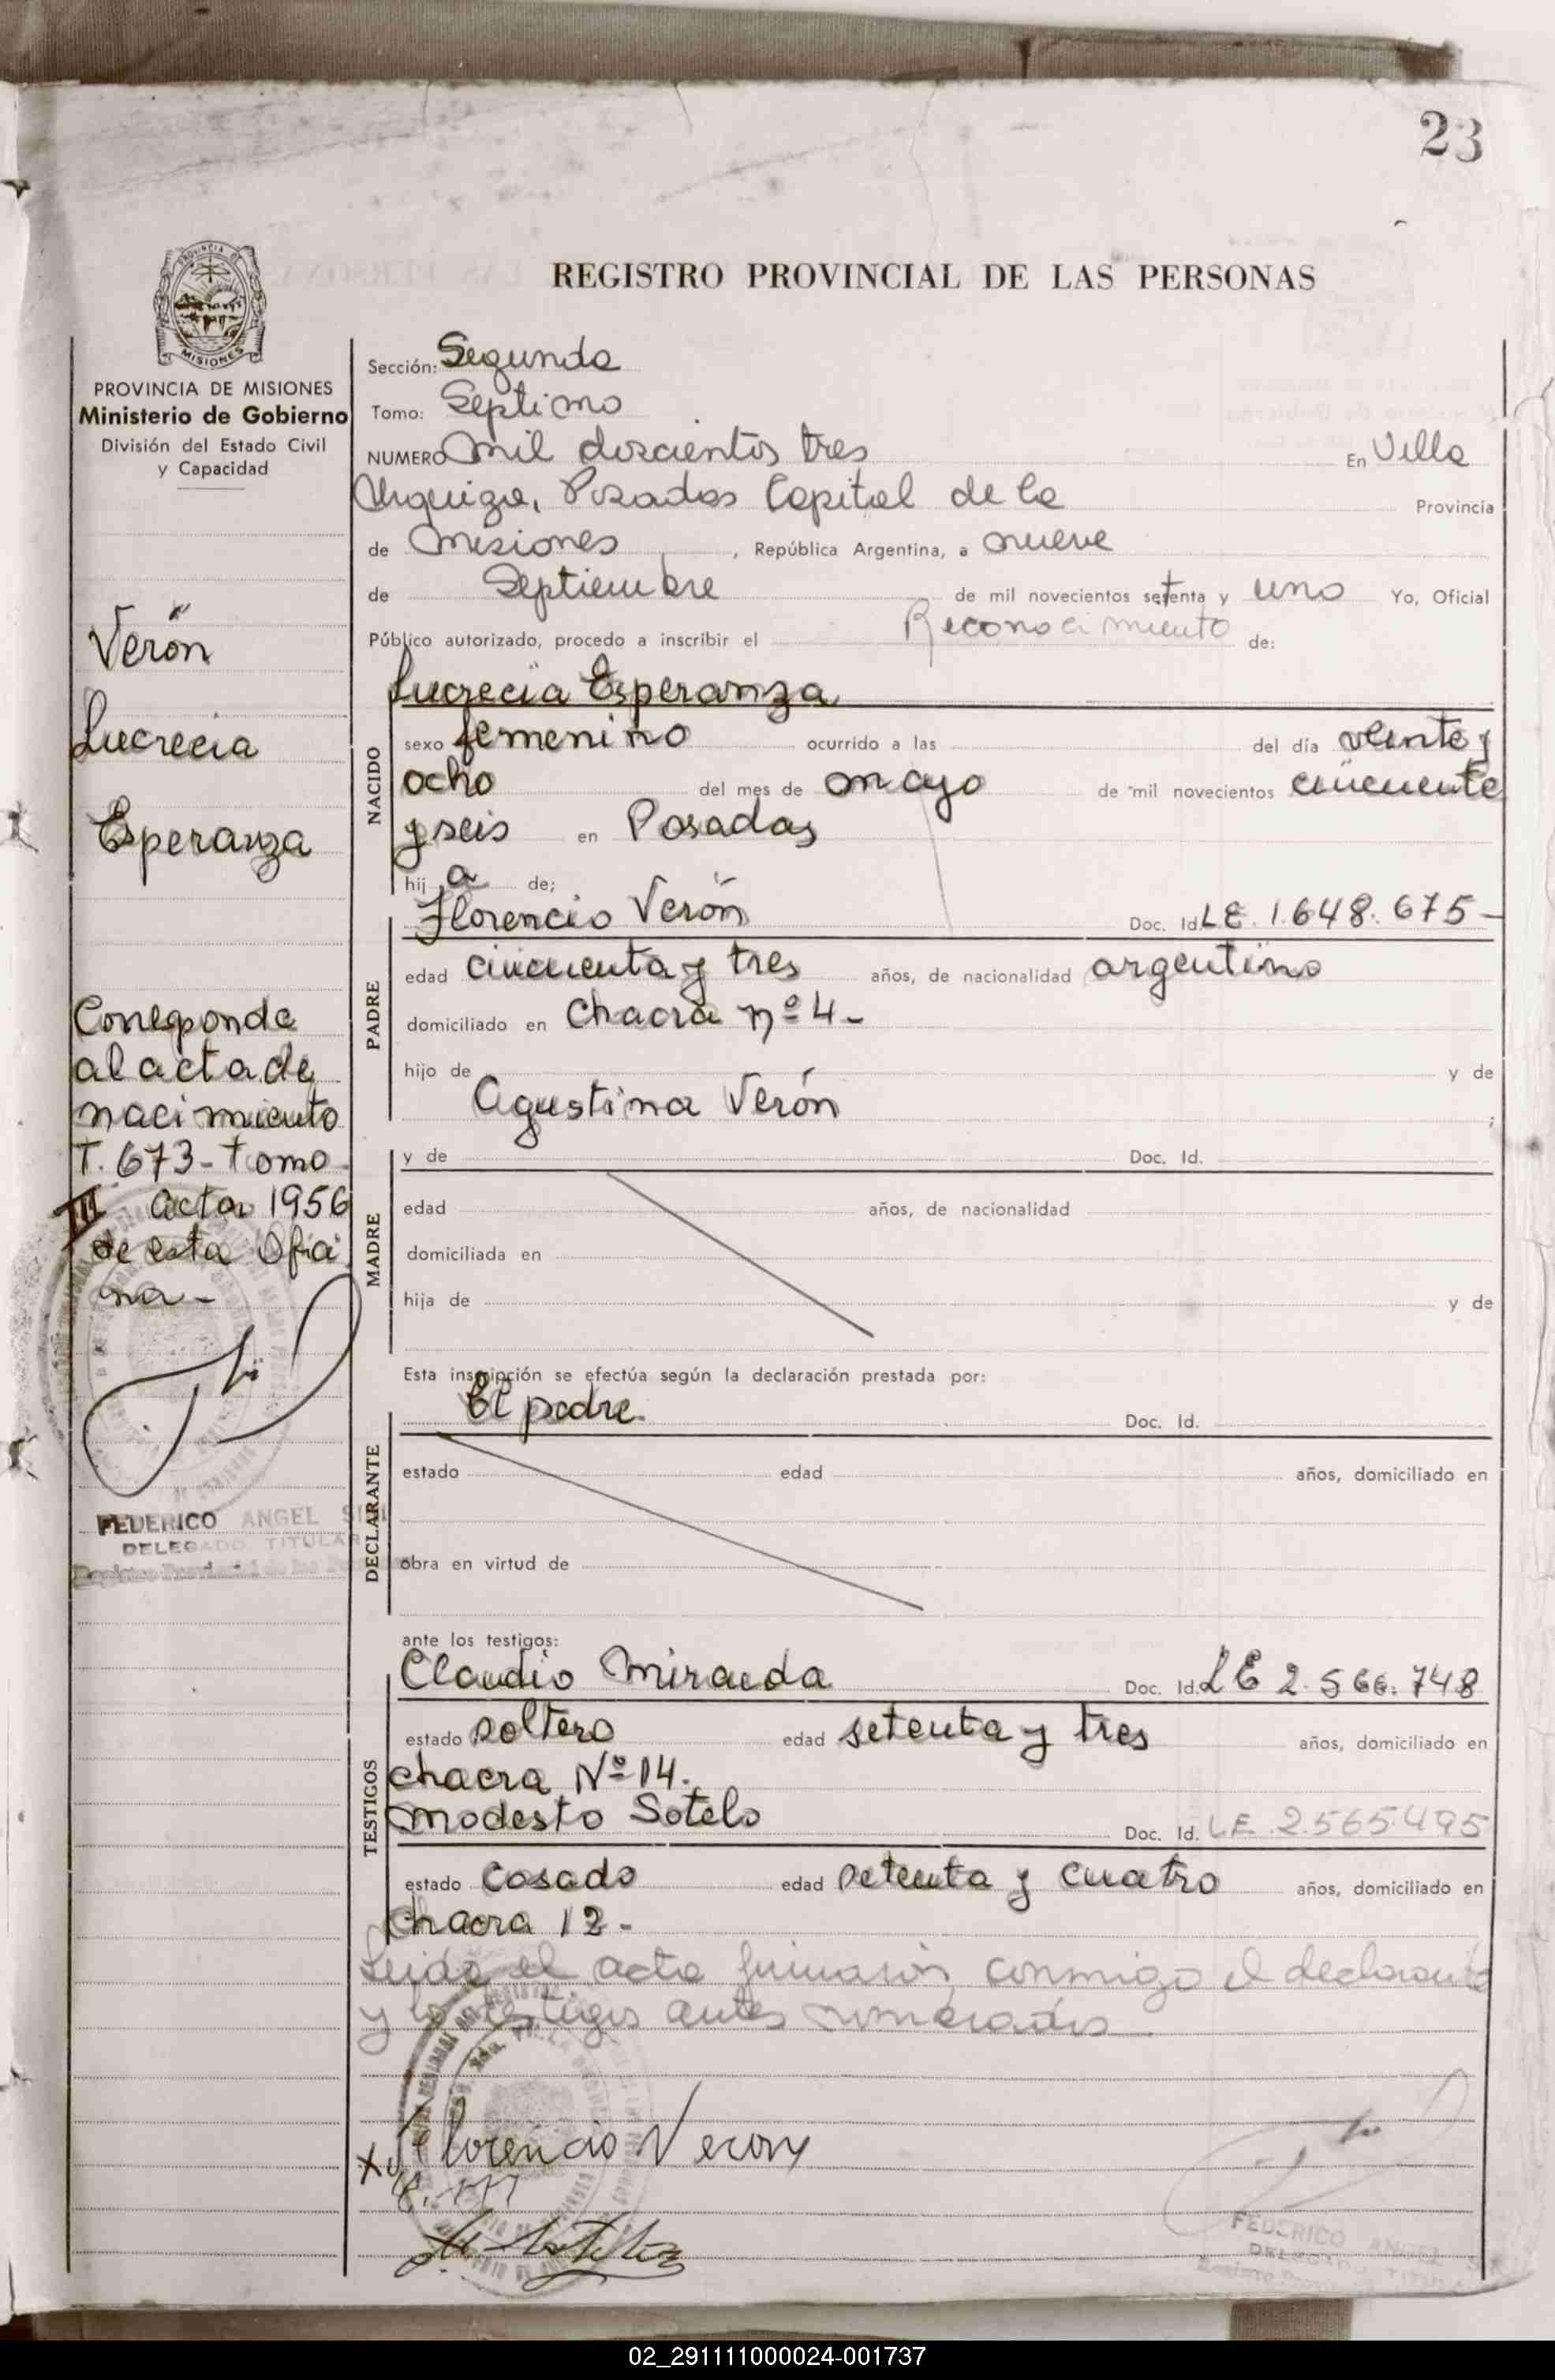 23
REGISTRO PROVINCIAL DE LAS PERSONAS
MISIONES
PROVINCIA DE MISIONES
Ministerio de Gobierno
División del Estado Civil
y Capacidad
Verón
Lucrecia
Esperanza
Corresponde
al acta de
nacimiento
T. 673 - tomo
III acta 1956
de esta Ofici
na -
FEDERICO ANGEL
DELEGADO TITULAR
Sección: Segunda
Tomo: Septimo
NUMERO mil doscientos tres En Villa
Urquiza, Posadas Capital de la Provincia
de Misiones, República Argentina, a nueve
de Septiembre de mil novecientos setenta y uno Yo, Oficial
Público autorizado, procedo a inscribir el Reconocimiento de:
Lucrecia Esperanza
NACIDO
sexo femenino ocurrido a las del día veinte y
ocho del mes de mayo de mil novecientos cincuenta
y seis en Posadas
hij a de;
Florencio Verón Doc. Id. LE. 1.648.675-
PADRE
edad cincuenta y tres años, de nacionalidad argentino
domiciliado en Chacra nº 4-
hijo de y de
Agustina Verón ;
MADRE
y de Doc. Id.
edad años, de nacionalidad
domiciliada en
hija de y de
Esta inscripción se efectúa según la declaración prestada por:
El padre. Doc. Id.
DECLARANTE
estado edad años, domiciliado en
obra en virtud de
ante los testigos:
Claudio Miranda Doc. Id. LE 2.566.748
TESTIGOS
estado soltero edad setenta y tres años, domiciliado en
chacra Nº 14.
Modesto Sotelo Doc. Id. LE. 2.565.495
estado casado edad setenta y cuatro años, domiciliado en
chacra 12-
Leida el acta firmaron conmigo el declarante
y los testigos antes nombrados
x Florencio Veron
FEDERICO ANGEL
02_291111000024-001737